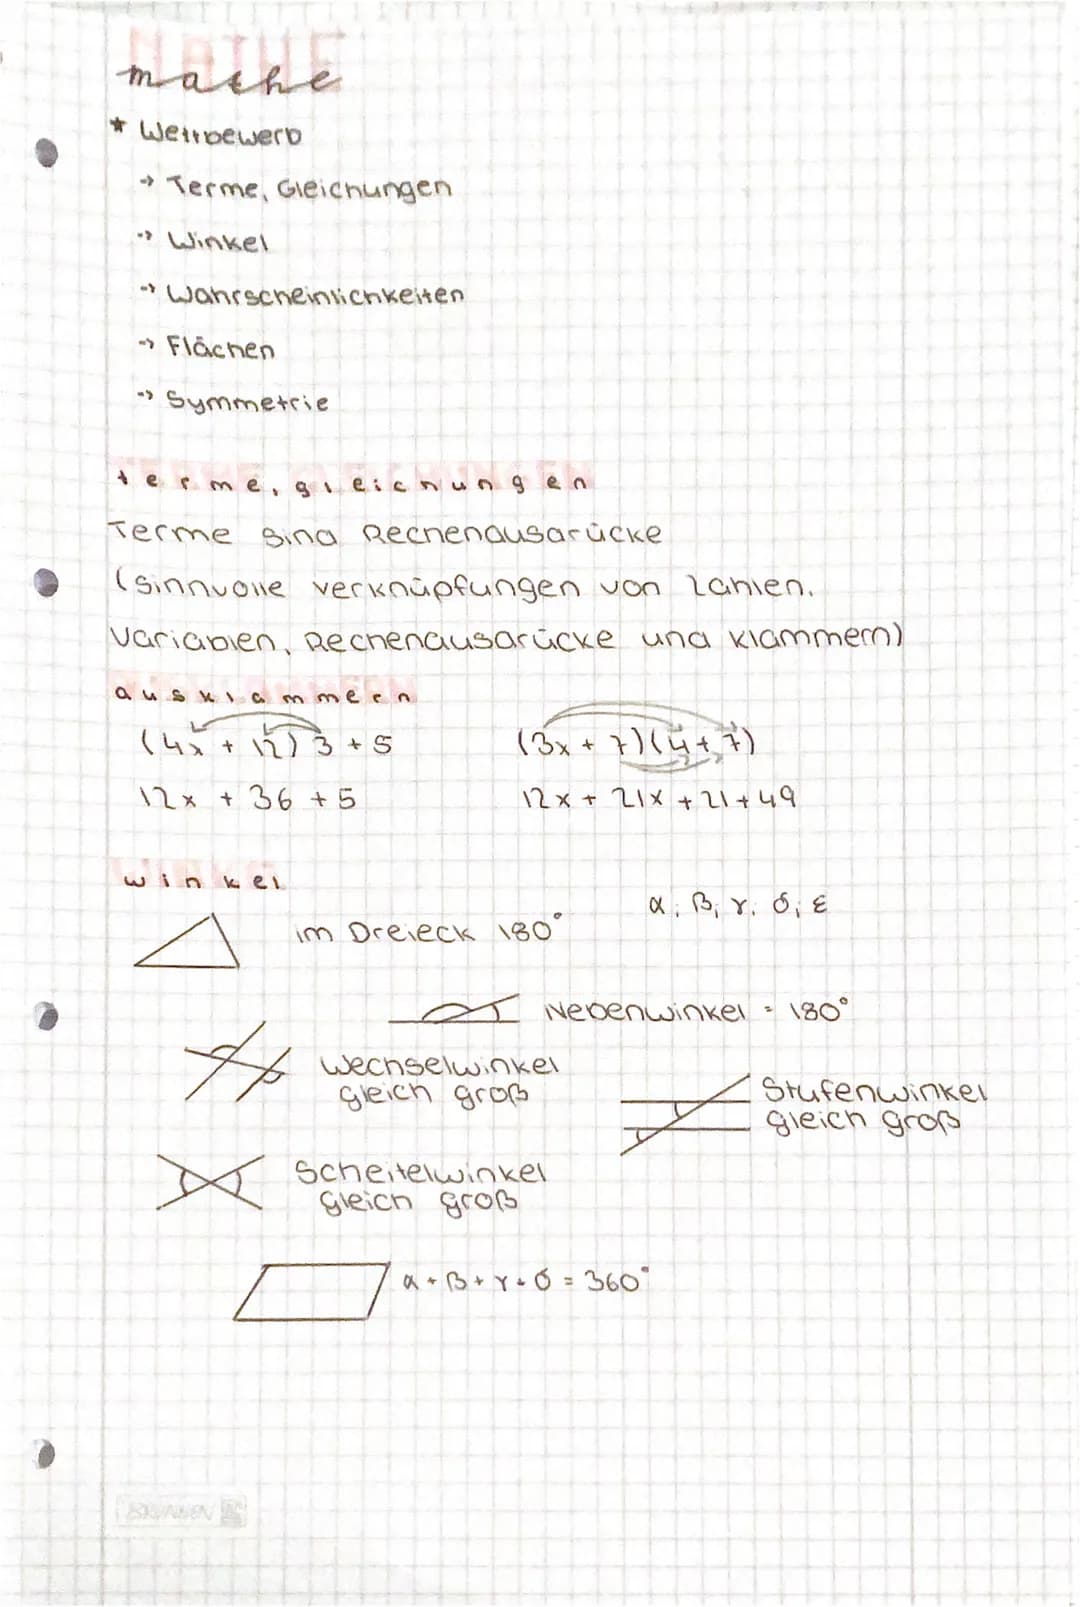 mathe
* Wettbewerb
→ Terme, Gleichungen
→ Winkel
→ Wahrscheinlichkeiten
→ Flächen
→ Symmetrie
terme, gleichungen
Terme sind Rechenausdrücke
(sinnvolle verknüpfungen von Zahlen,
Variablen, Rechenausdrücke und Klammern)
ausklammern
(4x + 12) 3 + 5
(3x + 7)(4 + 7)
12x + 36 + 5
12x + 21x + 21 + 49
winkel
α; β; γ; δ; ε
im Dreieck 180°
Nebenwinkel = 180°
Wechselwinkel
gleich groß
Stufenwinkel
gleich groß
Scheitelwinkel
gleich groß
α + β + γ + δ = 360°
BRUNNEN